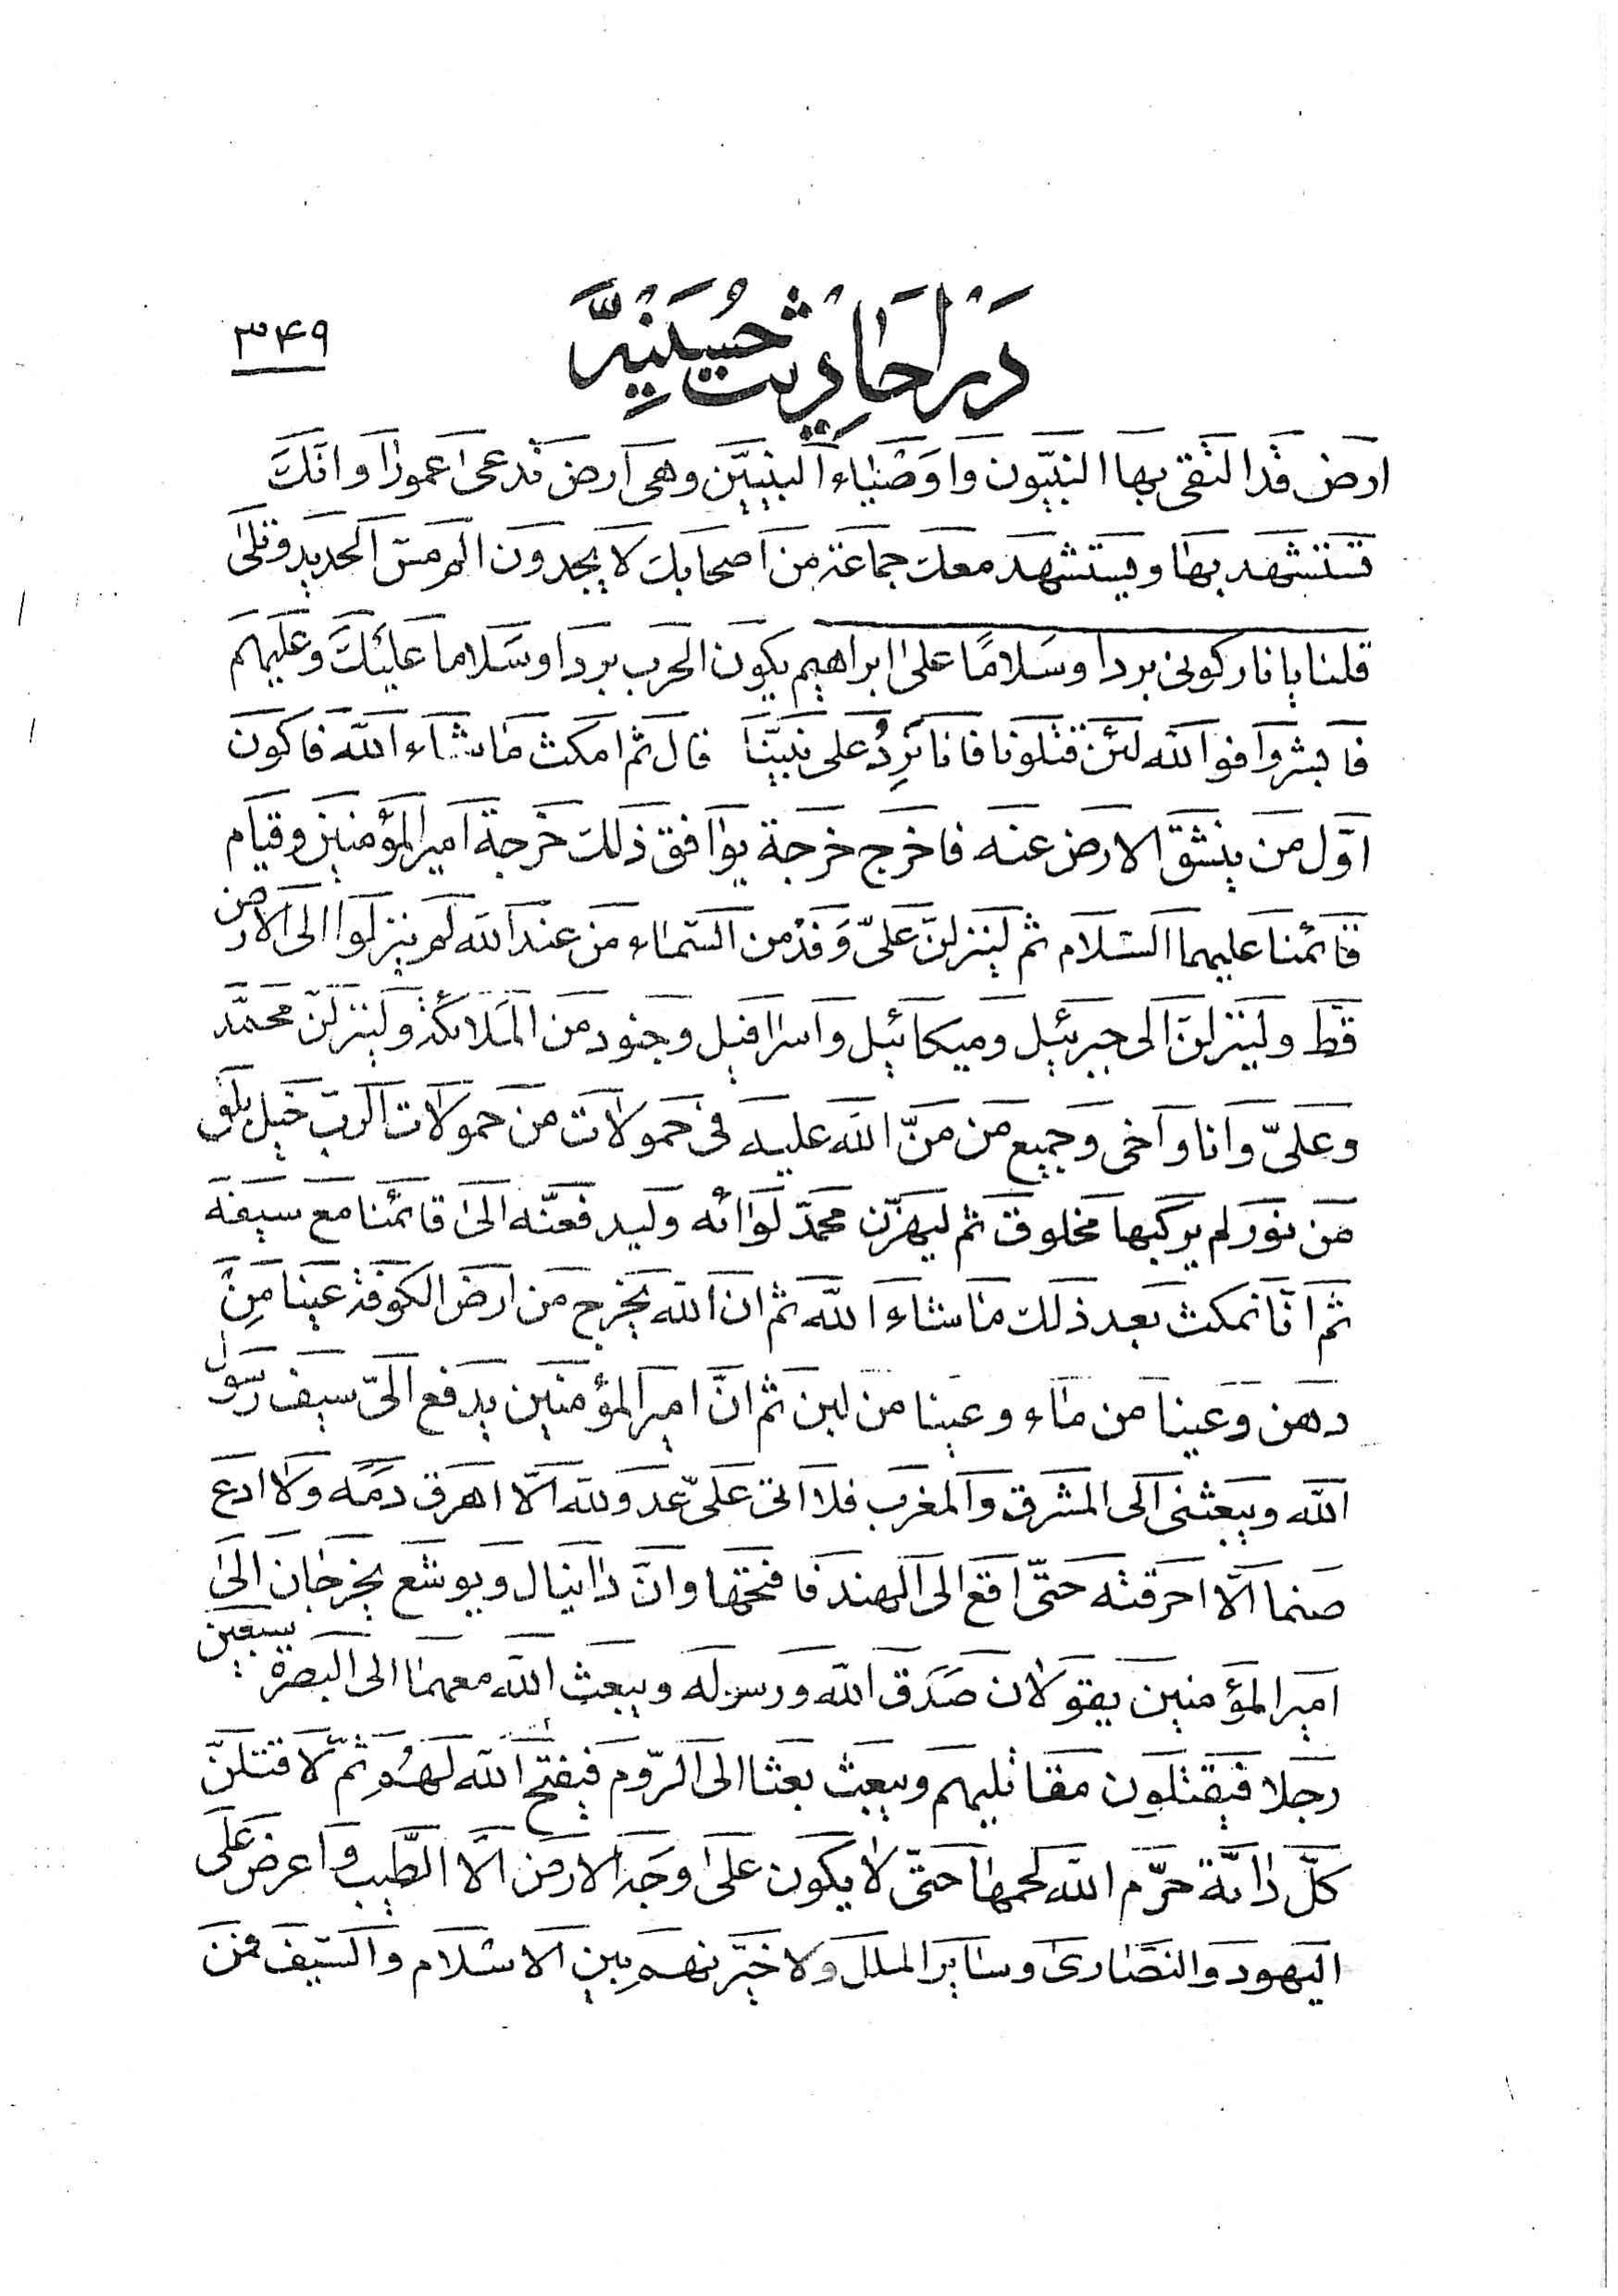 در احادیث حسینیه
۳۴۹
ارض قد التقی بها النبیّون و اوصیاء النبیین وهی ارض تدعی عمورا وانّک
تستشهد بها ویستشهد معک جماعة من اصحابک لا یجدون الم مسّ الحدید وتلی
قلنا یا نار کونی بردا وسلامًا علی ابراهیم یکون الحرب بردا وسلاما علیک وعلیهم
فابشروا فو الله لئن قتلونا فانا نرِدُ علی نبیّنا قال ثم امکث ما شاء الله فاکون
اوّل من ینشقّ الارض عنه فاخرج خرجة یوافق ذلک خرجة امیر المؤمنین وقیام
قائمنا علیهما السّلام ثم لینزلنّ علیّ وَفْدٌ من السّماء من عند الله لم ینزلوا الی الارض
قطّ ولینزلنّ الی جبرئیل ومیکائیل واسرافیل وجنود من الملائکة ولینزلنّ محمّد
وعلیّ وانا واخی وجمیع من منّ الله علیه فی حمولات من حمولات الربّ خیل بلق
من نور لم یرکبها مخلوق ثم لیهزّن محمّد لوائه ولیدفعنّه الی قائمنا مع سیفه
ثم انّا نمکث بعد ذلک ما شاء الله ثم ان الله یخرج من ارض الکوفة عینا مِن
دهن وعینا من ماء وعینا من لبن ثم انّ امیر المؤمنین یدفع الیّ سیف رسول
الله ویبعثنی الی المشرق والمغرب فلا اتی علیّ عدو لله الّا اهرق دمه ولا ادع
صنما الّا احرقته حتّی اقع الی الهند فافتحها وانّ دانیال ویوشع یخرجان الی
امیر المؤمنین یقولان صَدَق الله ورسوله ویبعث الله معهما الی البصرة سبعین
رجلا فیقتلون مقاتلیهم ویبعث بعثا الی الرّوم فیفتح الله لهم ثمّ لاقتلنّ
کلّ دابّة حرّم الله لحمها حتّی لا یکون علی وجه الارض الّا الطّیب واعرض علی
الیهود والنصاری وسایر الملل ولاخیّرنهم بین الاسلام والسّیف فمن